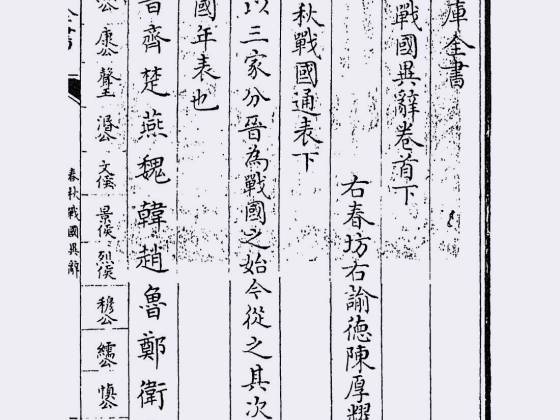 庫全書
戰國異辭卷首下
右春坊右諭德陳厚耀
秋戰國通表下
以三家分晉為戰國之始今從之其次
國年表也
晉齊楚燕魏韓趙魯鄭衛
公康公聲王湣公文侯景侯烈侯穆公繻公慎公
春秋戰國異辭
全書